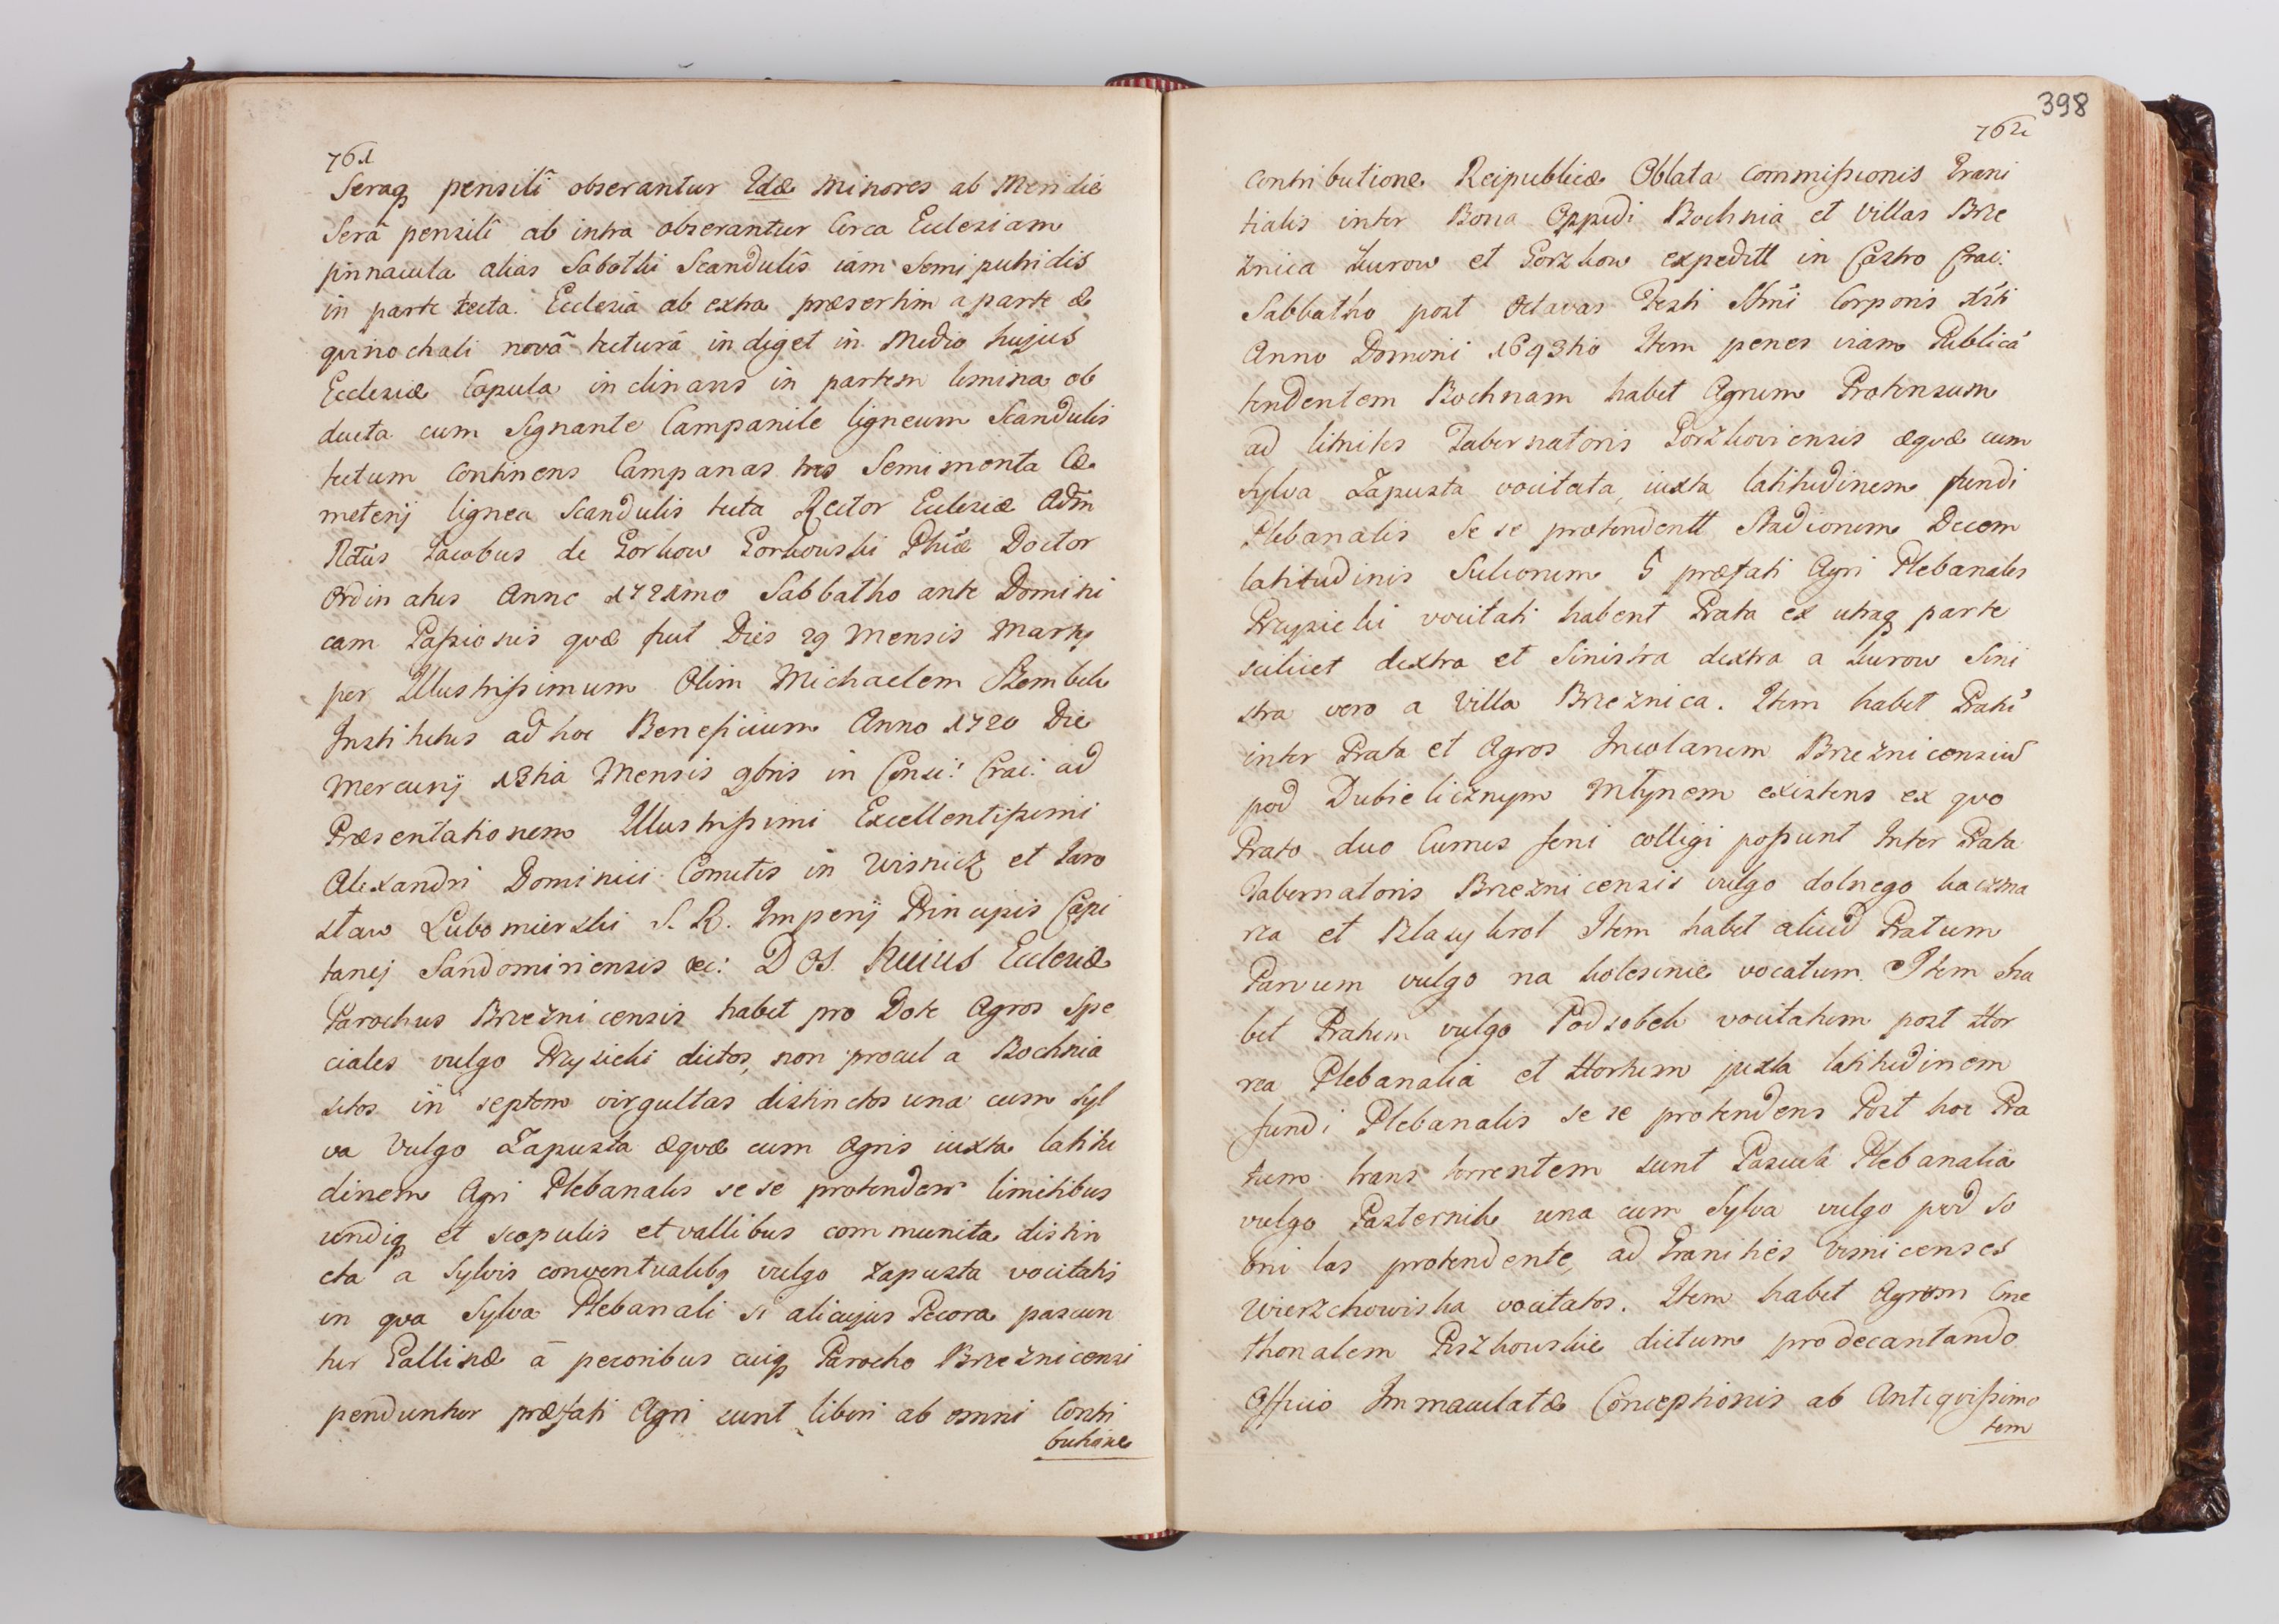 761
Seraq pensili obserantur Udæ Minores ab Meridie
Serâ pensili ab intra obserantur Circa Ecclesiam
pinnacula alias Sabathi Scandulis iam Semiputridis
in parte tecta. Ecclesia ab extra præsertim a parte æ
qvinochali novâ tecturâ indiget in Medio hujus
Ecclesiæ Copula inclinans in partem lamina ob
ducta cum Signante Campanile ligneum Scandulis
tectum Continens Campanas tres Semimenta Cæ
meterij lignea Scandulis tecta Rector Ecclesiæ Adm
Rdus Jacobus de Gorkow Gorkowski Phiæ Doctor
Ordinatus Anno 1721mo Sabbatho ante Domini
cam Paßionis qvæ fuit Dies 29 Mensis Martij
per Illustrißimum Olim Michaelem Szembek
Institutus ad hoc Beneficium Anno 1720 Die
Mercurij 13tia Mensis 9bris in Consi: Crac: ad
Præsentationem Illustrißimi Excellentißimi
Alexandri Dominici Comitis in Wisnicz et Jaro
sław Lubomierski S. R. Imperij Principis Capi
tanej Sandomiriensis &c: DOS. huius Ecclesiæ
Parochus Brzeznicensis habet pro Dote Agros Spe
ciales vulgo Przysieki dictos, non procul a Bochnia
sitos in septem virgultas distinctos una cum Syl
va Vulgo Zapusta æqvæ cum Agris iuxta latitu
dinem Agri Plebanalis se se protendens limitibus
undiq et scopulis et vallibus communita distin
cta a Sylvis conventualibq vulgo Zapusta vocitatis
in qva Sylva Plebanali si alicujus Pecora pascun
tur Gallinæ â pecoribus cuiq Parocho Brzeznicensi
penduntur præfati Agri sunt liberi ab omni Contri
butione
398
762
Contributione Reipublicæ Oblata Commißionis Grani
tialis inter Bona Oppidi Bochnia et Villas Brze
znica Zurow et Gorzkow expeditt in Castro Crac:
Sabbatho post Octavas Festi SSmi Corporis Xsti
Anno Domini 1693tio Item penes viam Publicâ
tendentem Bochnam habet Agrum Protensum
ad limites Tabernatoris Gorzkoviensis æqvæ cum
Sylva Zapusta vocitata, iuxta latitudinem fundi
Plebanalis Se se protendentt Stadionum Decem
latitudinis Sulcorum 5 præfati Agri Plebanales
Przysieki vocitati habent Prata ex utraq parte
scilicet dextra et Sinistra dextra a Zurow Sini
stra vero a Villa Brzeznica. Item habet Pratû
inter Prata et Agros Incolarum Brzeznicensiû
pod Dubielicznym Młynem existens ex qvo
Prato duo Currus feni colligi poßunt Inter Prata
Tabernatoris Brzeznicensis vulgo dolnego kaczma
rza et Blazy krol Item habet aliud Pratum
Parvum vulgo na kolesinie vocatum Item ha
bet Pratum vulgo Podsobek vocitatum post Hor
rea Plebanalia et Hortum juxta latitudinem
fundi Plebanalis se se protendens Post hoc Pra
tum trans torrentem sunt Pascua Plebanalia
vulgo Pasternik una cum Sylva vulgo pod so
bni las protendente, ad Granities Visnicenses
Wierzchowiska vocitatos. Item habet Agrum Cme
thonalem Piszkowskie dictum pro decantando
Officio Immaculatæ Conceptionis ab Antiqvißimo
tem